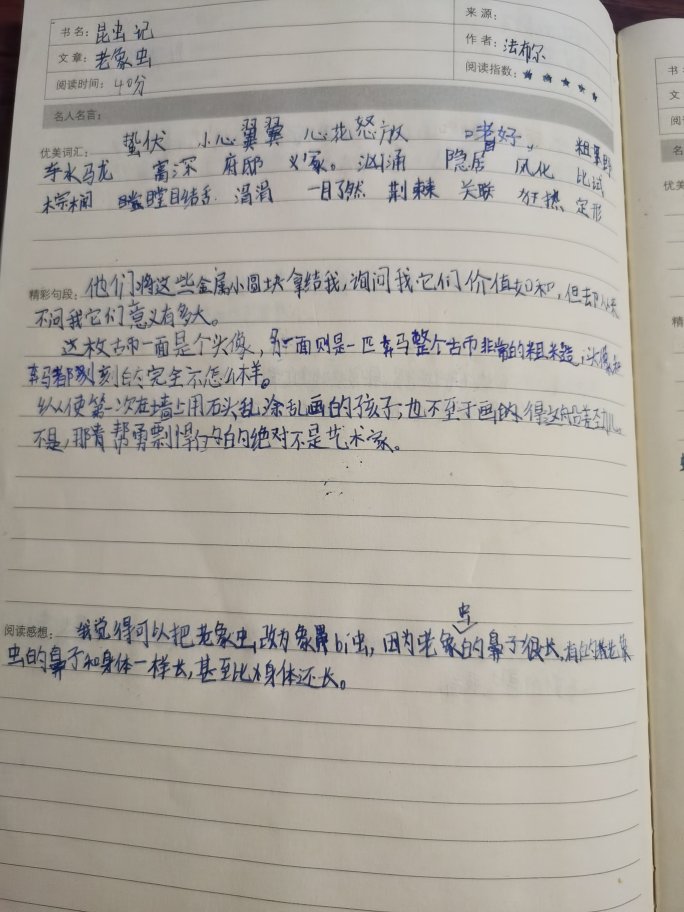 来源：
书名：昆虫记
作者：法布尔
文章：老象虫
阅读指数：★★★★★
阅读时间：40分
名人名言：
优美词汇：蛰伏 小心翼翼 心花怒放 嗜好
车水马龙 高深 府邸 汹涌 隐居 风化 比试
瞠目结舌 涓涓 一目了然 荆棘 关联 狂热 定形
精彩句段：他们将这些金属小圆块拿给我，询问我它们价值如何，但去从来
不问我它们意义有多大。
这枚古币一面是个头像，另一面则是一匹奔马整个古币非常的粗糙，头像和
奔马都刻完全不怎么样。
纵使第一次在墙上用石头乱涂乱画的孩子；也不至于画的得这
不是，那青帮勇剽悍的绝对不是艺术家。
阅读感想：我觉得可以把老象虫改为象鼻bi虫，因为老象虫的鼻子很长，有的老象
虫的鼻子和身体一样长，甚至比身体还长。
书
文
阅
名
优美
精